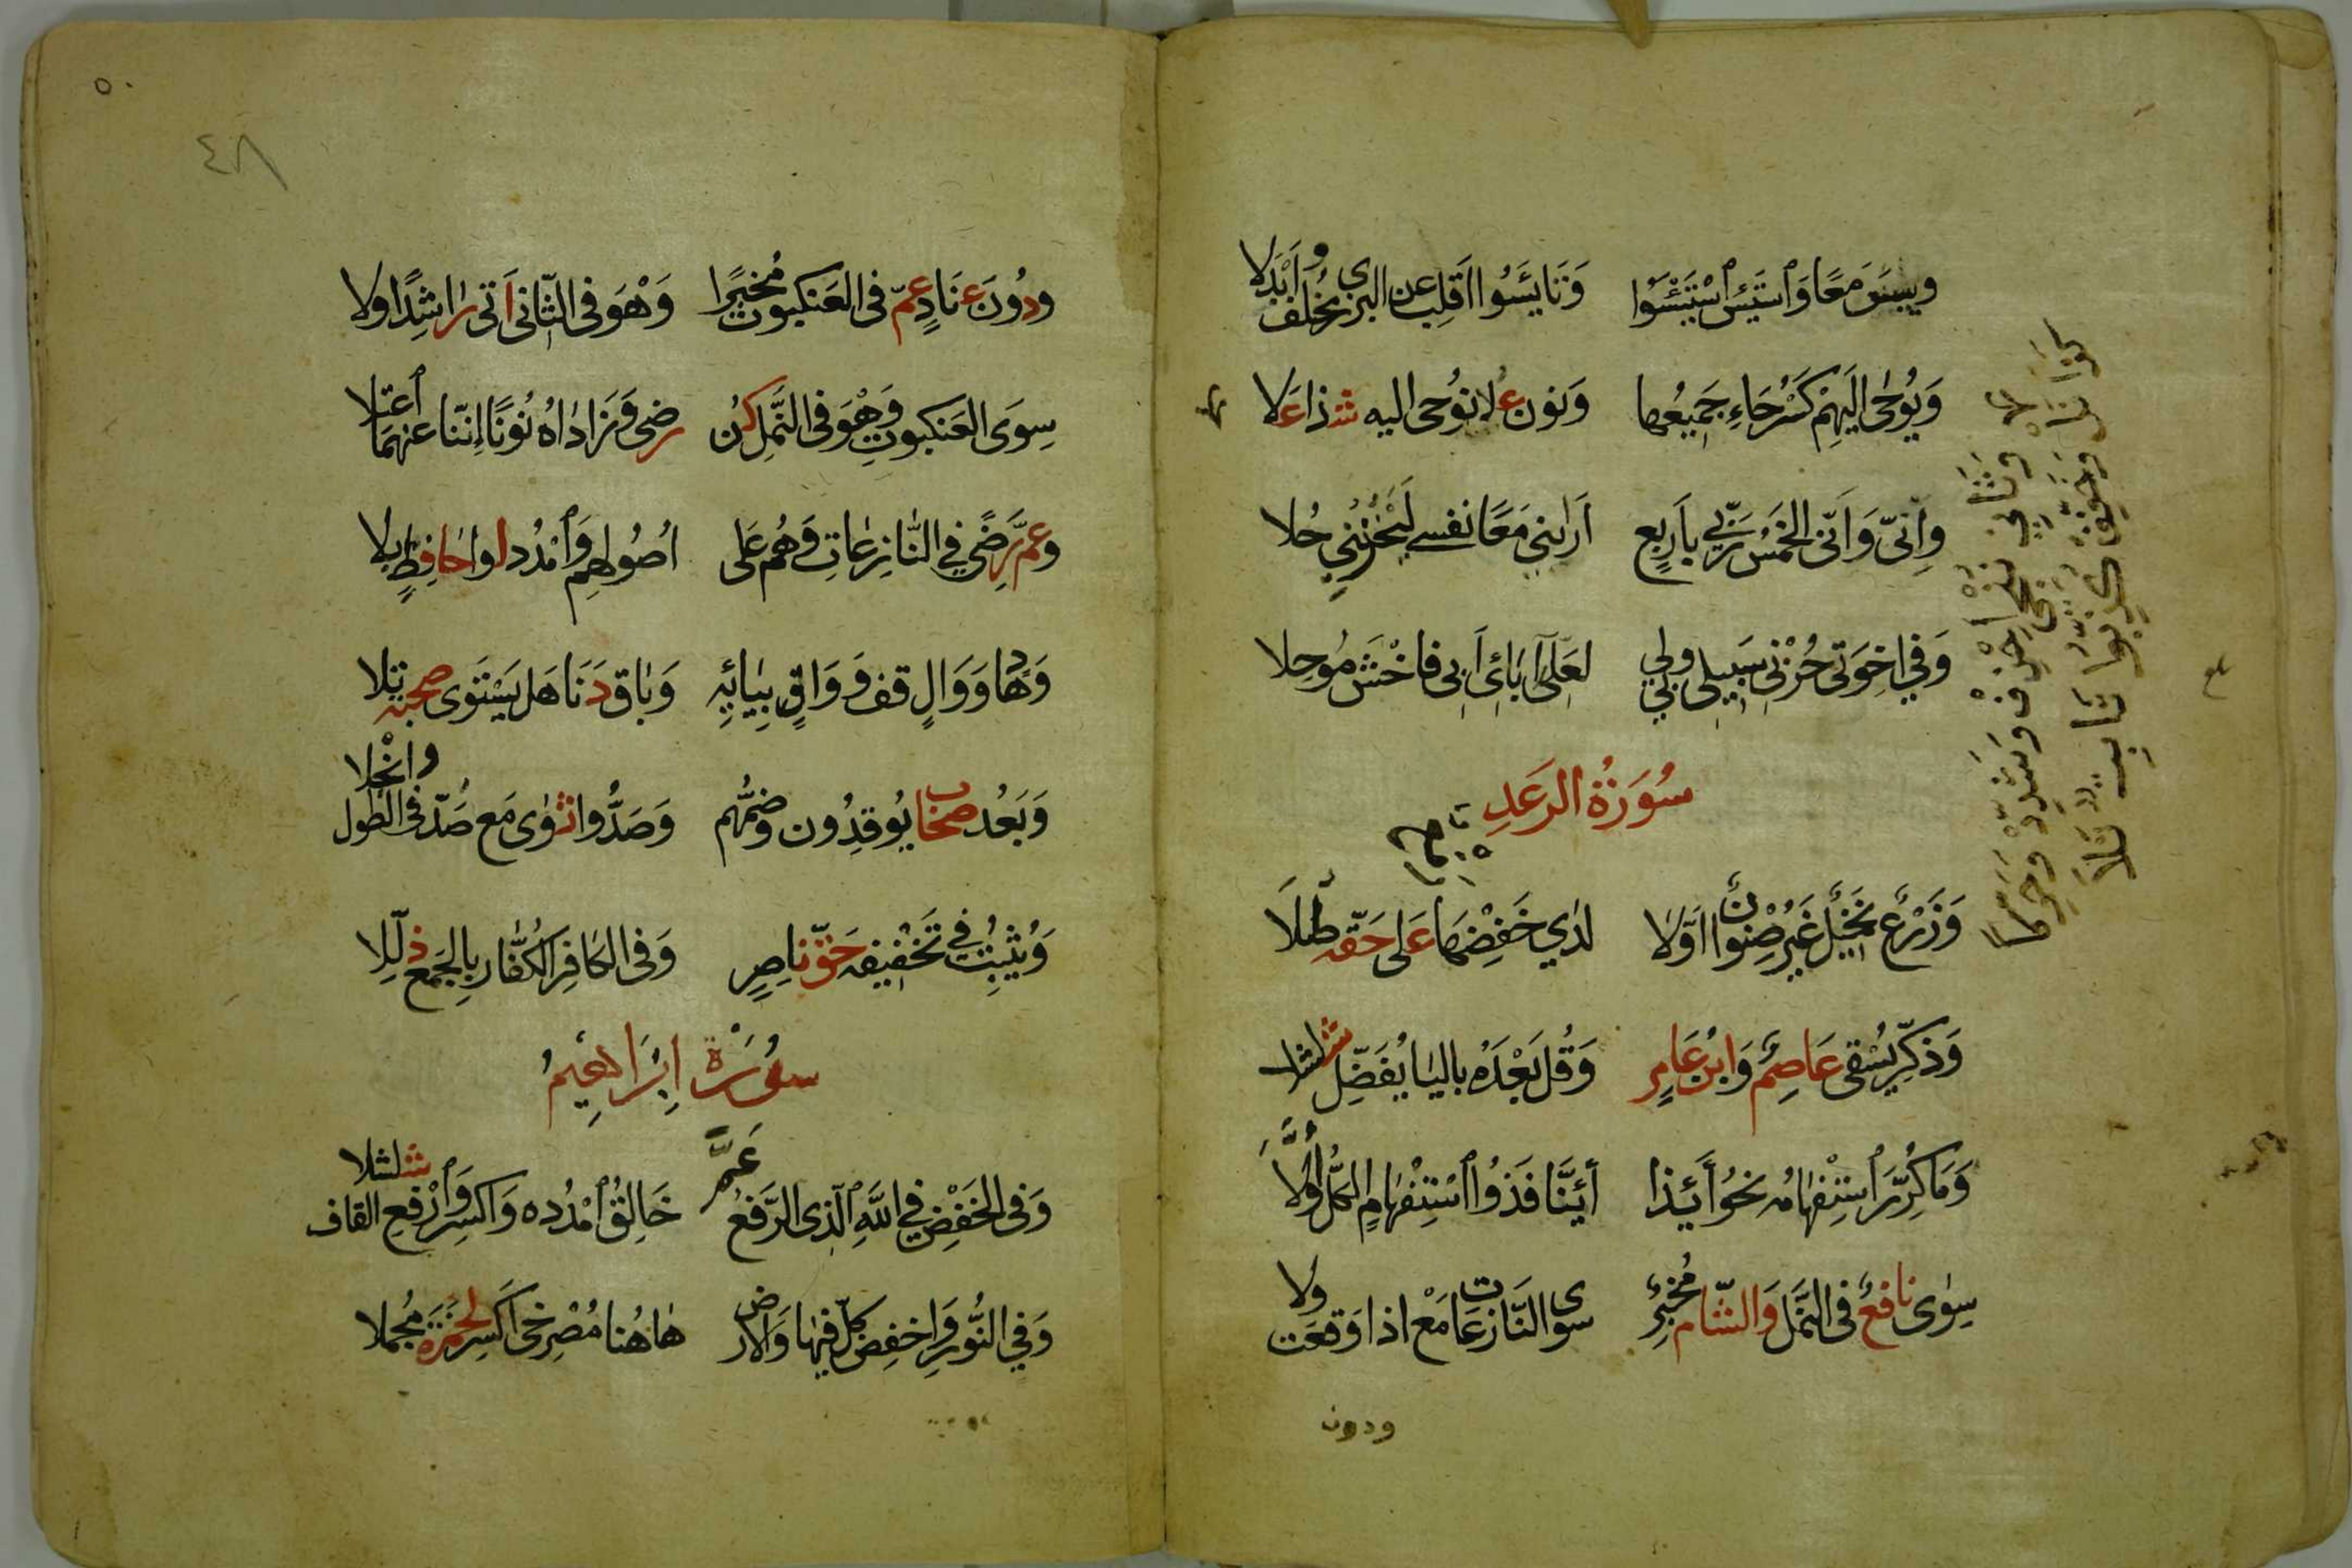 وييئس معًا وٱستيئس ٱستيئسوا وتايئسوا اقلب عن البزي بخلف وابدلا
ويوحى اليهم كسر حاء جميعها ونون علا نوحى اليه شذا علا
وانّى وانّى الخمس ربّي باربع ارانى معًا نفسى ليحزننى حلا
وفي اخوتى حزنى سبيلى ولى بي لعلّى اباءى ابى فاخش موحلا
سورة الرعد
وزرع نخيل غير صنوان اوّلا لدى خفضها على حقّه طلا
وذكّر يسقى عاصم وابن عامر وقل بعده باليا يفضّل شلشلا
وما كرّر ٱستفهامه نحو أئذا أئنّا فذو ٱستفهام الكلّ اوّلا
سوى نافع في النّمل والشّام مخبر سوى النّازعات مع اذا وقعت ولا
ودون
وثاني ننج احذف وشدّد وحرّكا
كذا نل وخفّف كذّبوا ثابتا تلا
٥٠
٤٨
ودون عناد عمّ في العنكبوت مخبرًا وهو في الثّانى اتى راشدًا ولا
سوى العنكبوت وهو في النّمل كن رضى وزاداه نونًا إنّنا عنهما ٱعتلا
وعمّ رضًى في النّازعات وهم على اصولهم وٱمدد لوا حافظ بلا
وهاد ووال قف وواق بيائه وباق دنا هل يستوى صحبة تلا
وبعد صحاب يوقدون وضمّهم وصدّوا ثوى مع صدّ في الطّول وانجلا
ويثبت في تخفيفه حقّ ناصر وفي الكافر الكفّار بالجمع ذلّلا
سورة ابراهيم
وفي الخفض في اللّه ٱلّذى الرّفع عمّ خالق ٱمدده واكسر وٱرفع القاف شلشلا
وفي النّور واخفض كلّ فيها والارض هاهنا مصرخى اكسر لحمزة مجملا